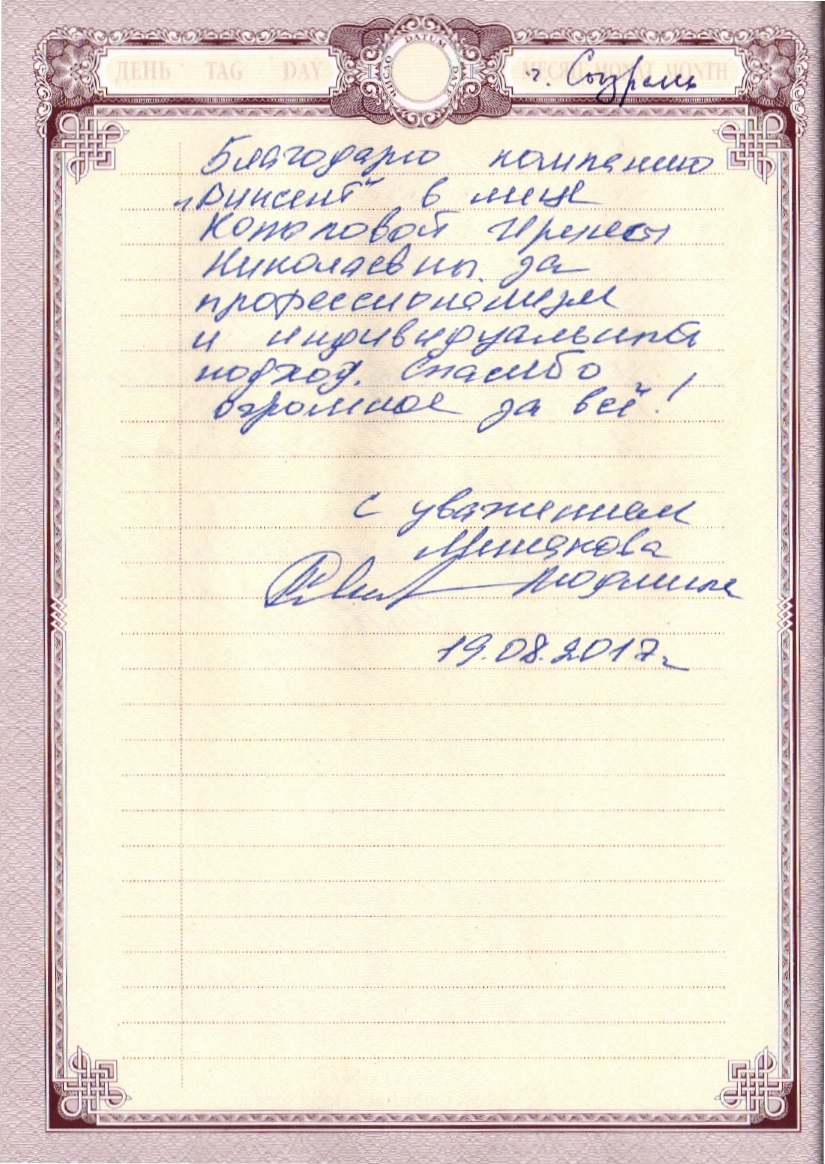 ДЕНЬ TAG DAY
ЧИСЛО DATUM DATE
МЕСЯЦ MONAT MONTH
г.
Благодарю компанию
„Винсент" в лице
Копаловой Ирины
Николаевны за
профессионализм
и индивидуальный
подход. Спасибо
огромное за всё!
С уважением
Людмила
19.08.2017г